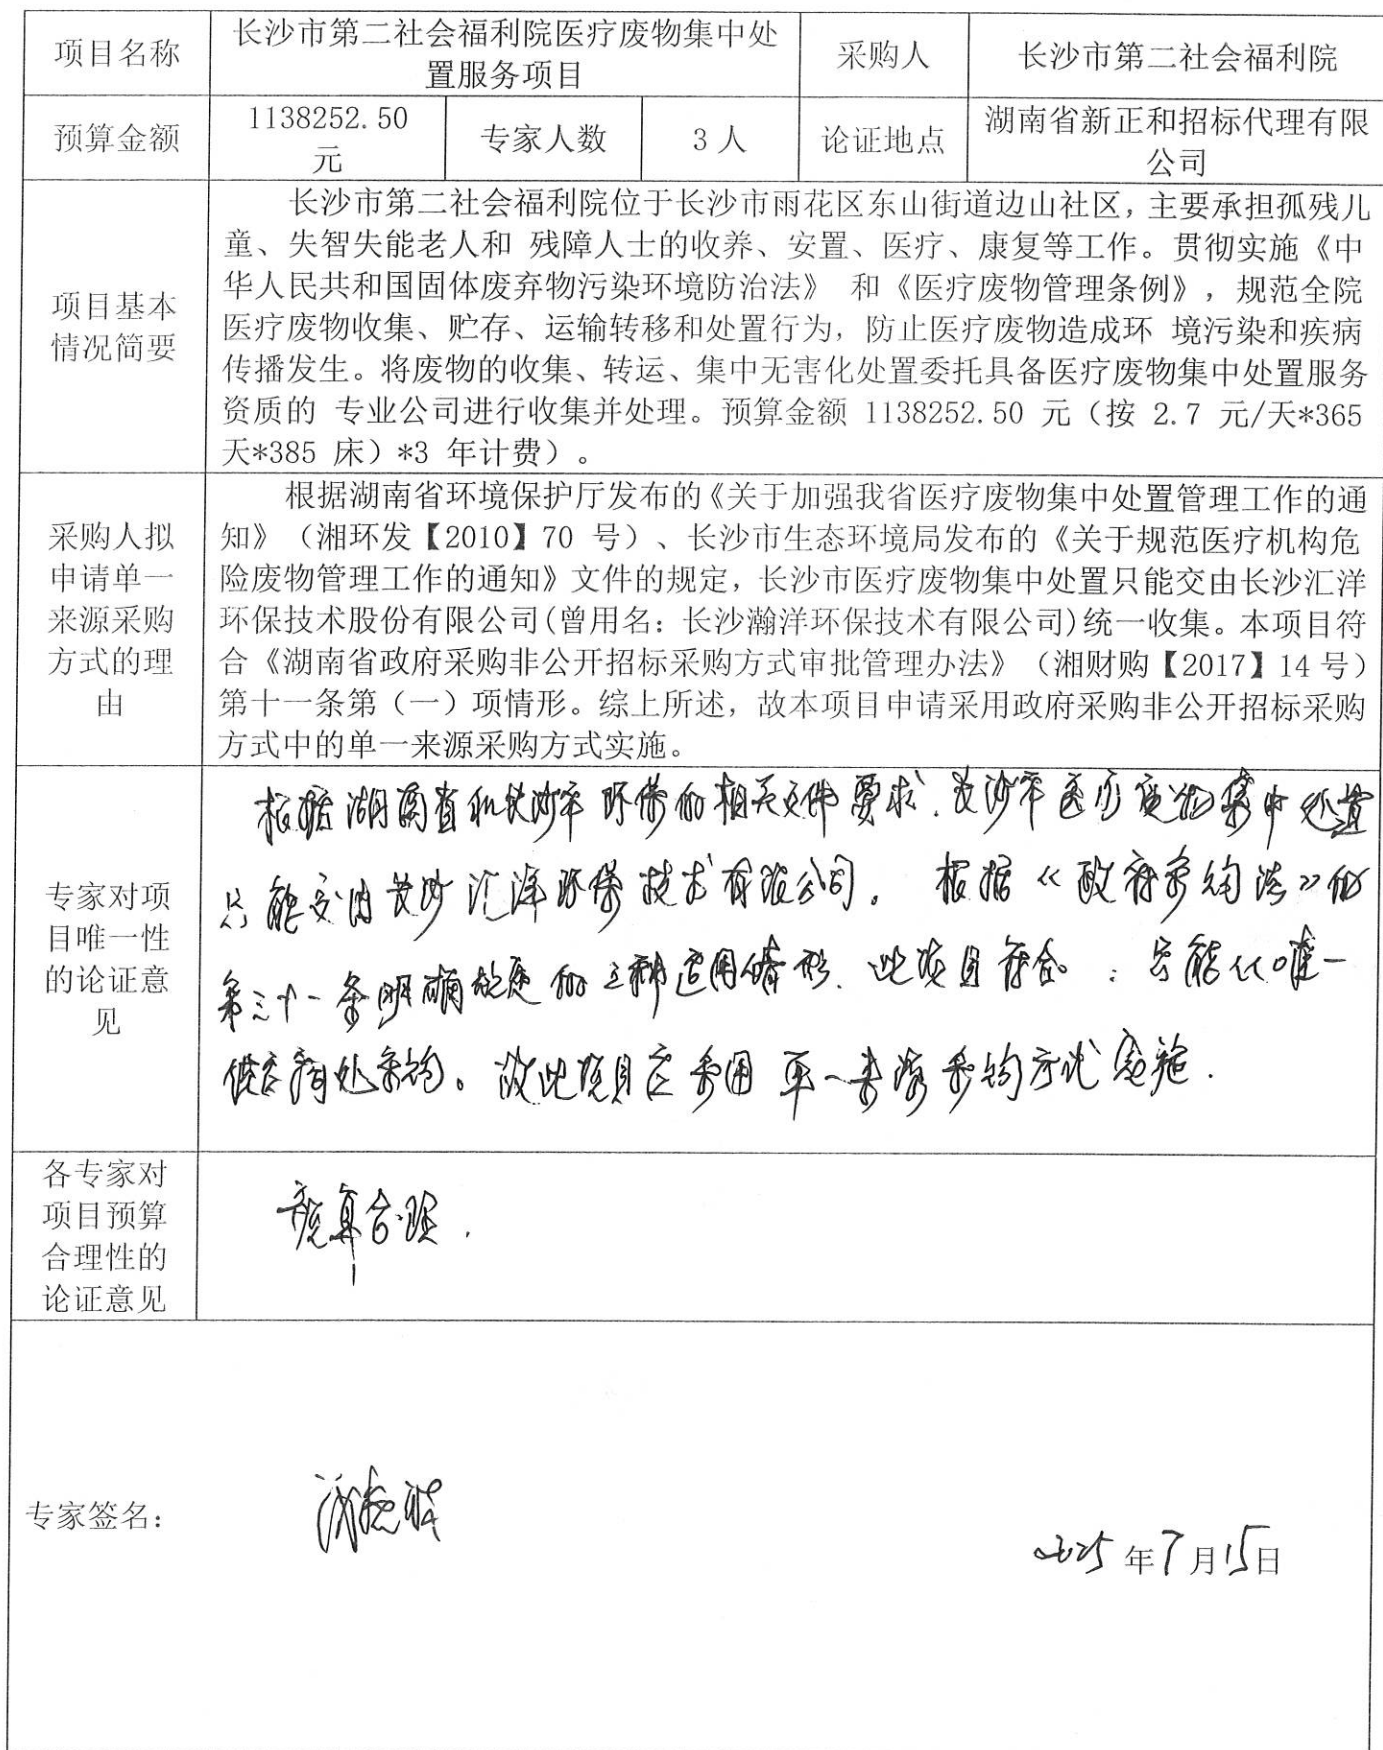 项目名称
长沙市第二社会福利院医疗废物集中处
置服务项目
采购人
长沙市第二社会福利院
预算金额
1138252.50
元
专家人数
3人
论证地点
湖南省新正和招标代理有限
公司
项目基本
情况简要
长沙市第二社会福利院位于长沙市雨花区东山街道边山社区，主要承担孤残儿
童、失智失能老人和 残障人士的收养、安置、医疗、康复等工作。贯彻实施《中
华人民共和国固体废弃物污染环境防治法》 和《医疗废物管理条例》，规范全院
医疗废物收集、贮存、运输转移和处置行为，防止医疗废物造成环 境污染和疾病
传播发生。将废物的收集、转运、集中无害化处置委托具备医疗废物集中处置服务
资质的 专业公司进行收集并处理。预算金额 1138252.50 元（按 2.7 元/天*365
天*385 床）*3 年计费）。
采购人拟
申请单一
来源采购
方式的理
由
根据湖南省环境保护厅发布的《关于加强我省医疗废物集中处置管理工作的通
知》（湘环发【2010】70 号）、长沙市生态环境局发布的《关于规范医疗机构危
险废物管理工作的通知》文件的规定，长沙市医疗废物集中处置只能交由长沙汇洋
环保技术股份有限公司(曾用名：长沙瀚洋环保技术有限公司)统一收集。本项目符
合《湖南省政府采购非公开招标采购方式审批管理办法》（湘财购【2017】14号）
第十一条第（一）项情形。综上所述，故本项目申请采用政府采购非公开招标采购
方式中的单一来源采购方式实施。
专家对项
目唯一性
的论证意
见
根据湖南省和长沙市环保的相关文件要求.长沙市医疗废物集中处置
只能交由长沙汇洋环保技术有限公司。 根据《政府采购法》的
第三十一条明确规定的三种适用情形.此项目符合：只能从唯一
供应商处采购。故此项目应采用单一来源采购方式实施.
各专家对
项目预算
合理性的
论证意见
预算合理.
专家签名：
2025年7月15日